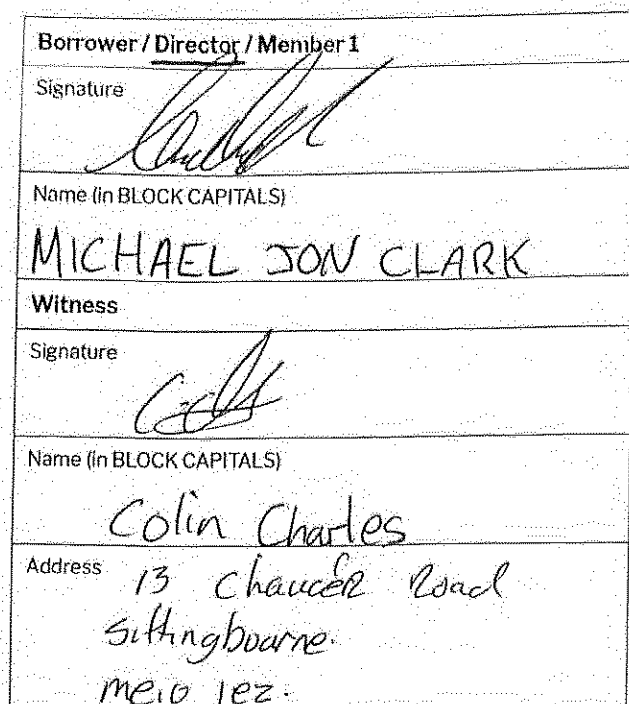 Borrower / Director / Member 1
Signature
Name (in BLOCK CAPITALS)
MICHAEL JON CLARK
Witness
Signature
Name (in BLOCK CAPITALS)
Colin Charles
Address 13 Chaucer Road
Sittingbourne.
ME10 1EZ.